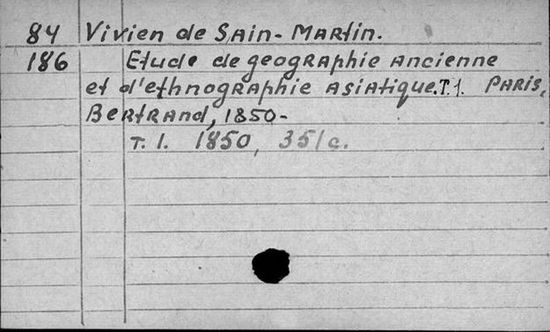 84 Vivien de Sain- Martin.
186 Etude de geographie ancienne
et d'ethnographie asiatique. T. 1. Paris,
Bertrand, 1850-
T. 1. 1850, 351c.